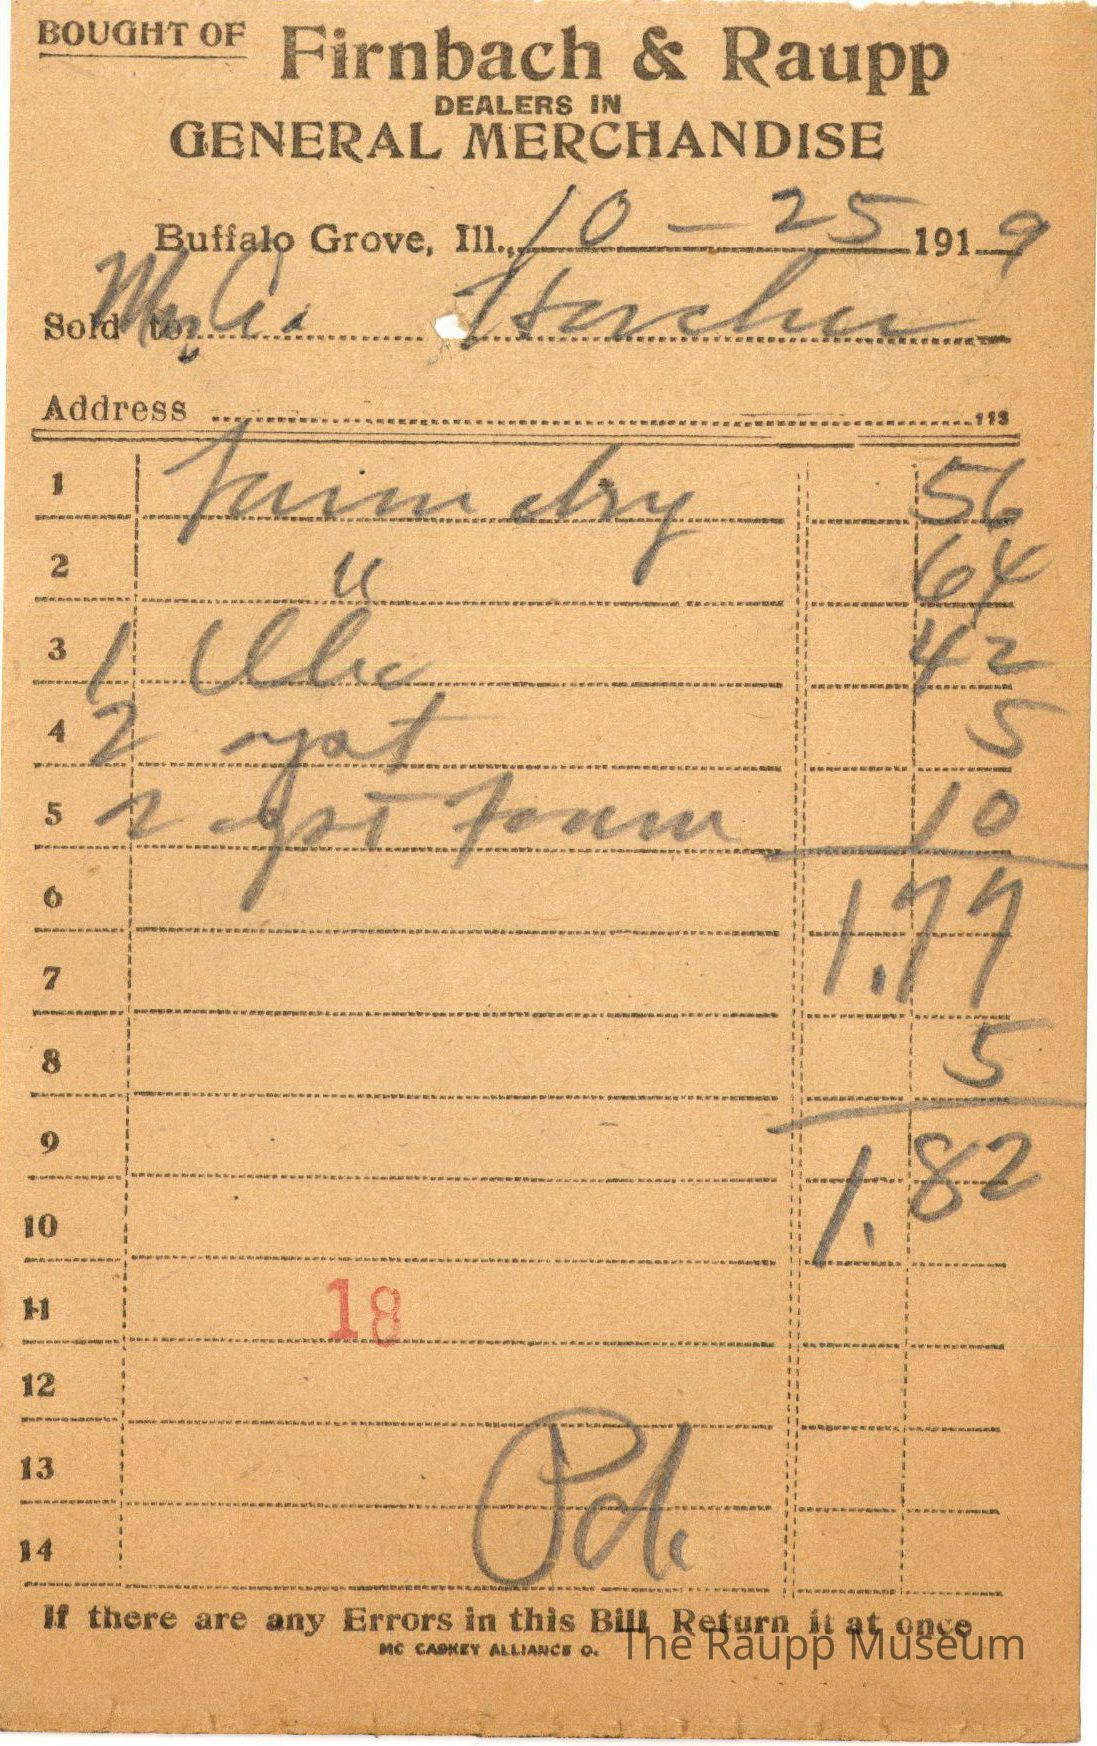 BOUGHT OF Firnbach & Raupp
DEALERS IN
GENERAL MERCHANDISE
Buffalo Grove, Ill., 10-25 1919
Sold to
Address 113
1 dry 56
2 " 64
3 1 42
4 2 5
5 2 10
6 1.77
7
8 5
9 1.82
10
11 18
12
13 Pd.
14
If there are any Errors in this Bill Return it at once
MC CASKEY ALLIANCE O.
The Raupp Museum